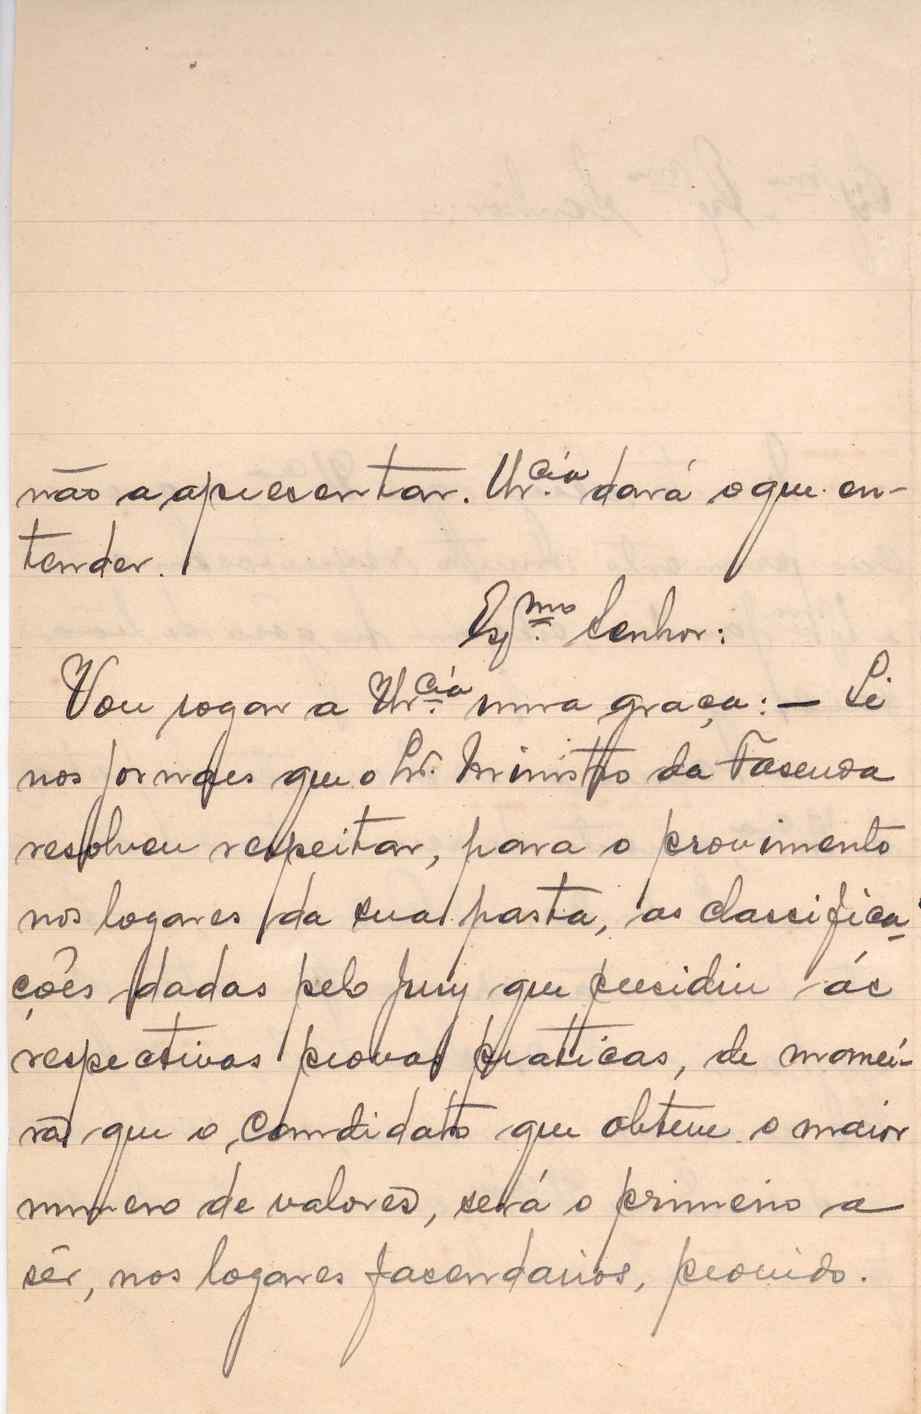 não a apresentar. Vr.cia dará o que en-
tender.
Exmo. Senhor:
Vou rogar a Vr.cia uma graça: — Li
nos jornaes que o Snr. Ministro da Fasenda
resolveu respeitar, para o provimento
nos logares da sua pasta, as classifica-
ções dadas pelo Jury que presidiu ás
respectivas provas praticas, de manei-
ra que o candidato que obteve o maior
numero de valores, será o primeiro a
sêr, nos logares fasendarios, provido.